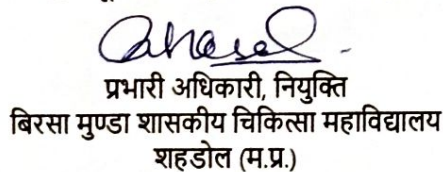 प्रभारी अधिकारी, नियुक्ति
बिरसा मुण्डा शासकीय चिकित्सा महाविद्यालय
शहडोल (म.प्र.)